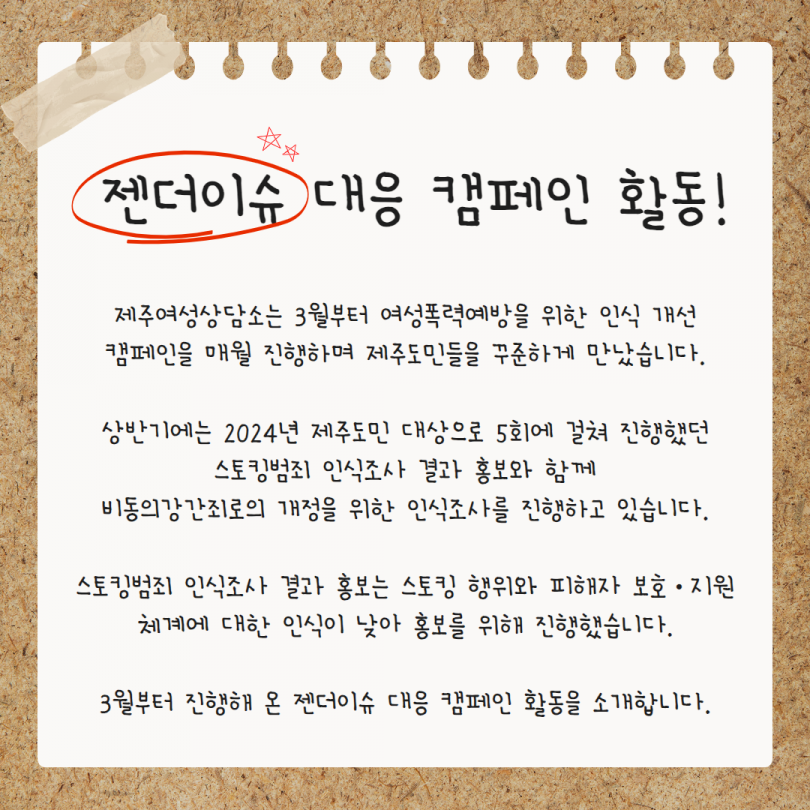 젠더이슈 대응 캠페인 활동!
제주여성상담소는 3월부터 여성폭력예방을 위한 인식 개선
캠페인을 매월 진행하며 제주도민들을 꾸준하게 만났습니다.
상반기에는 2024년 제주도민 대상으로 5회에 걸쳐 진행했던
스토킹범죄 인식조사 결과 홍보와 함께
비동의강간죄로의 개정을 위한 인식조사를 진행하고 있습니다.
스토킹범죄 인식조사 결과 홍보는 스토킹 행위와 피해자 보호·지원
체계에 대한 인식이 낮아 홍보를 위해 진행했습니다.
3월부터 진행해 온 젠더이슈 대응 캠페인 활동을 소개합니다.